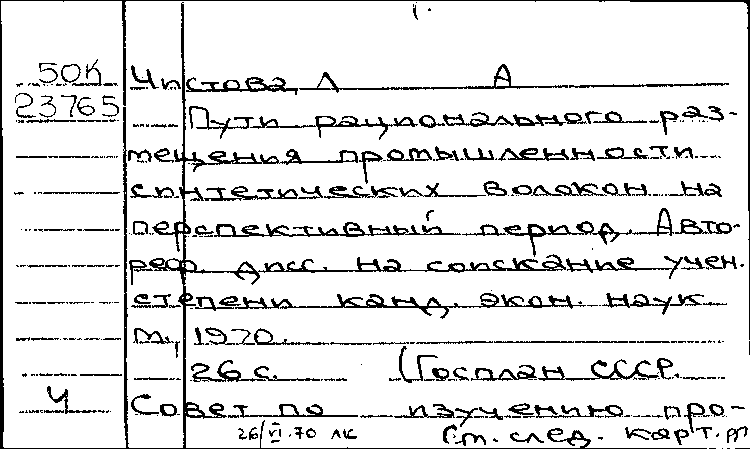 50К Чистова, Л А
23765 Пути рационального раз-
мещения промышленности
синтетических волокон на
перспективный период. Авто-
реф. дисс. на соискание учен.
степени канд. экон. наук
М., 1970.
26 с. (Госплан СССР.
Ч Совет по изучению про-
26/VI-70 См. след. карт.